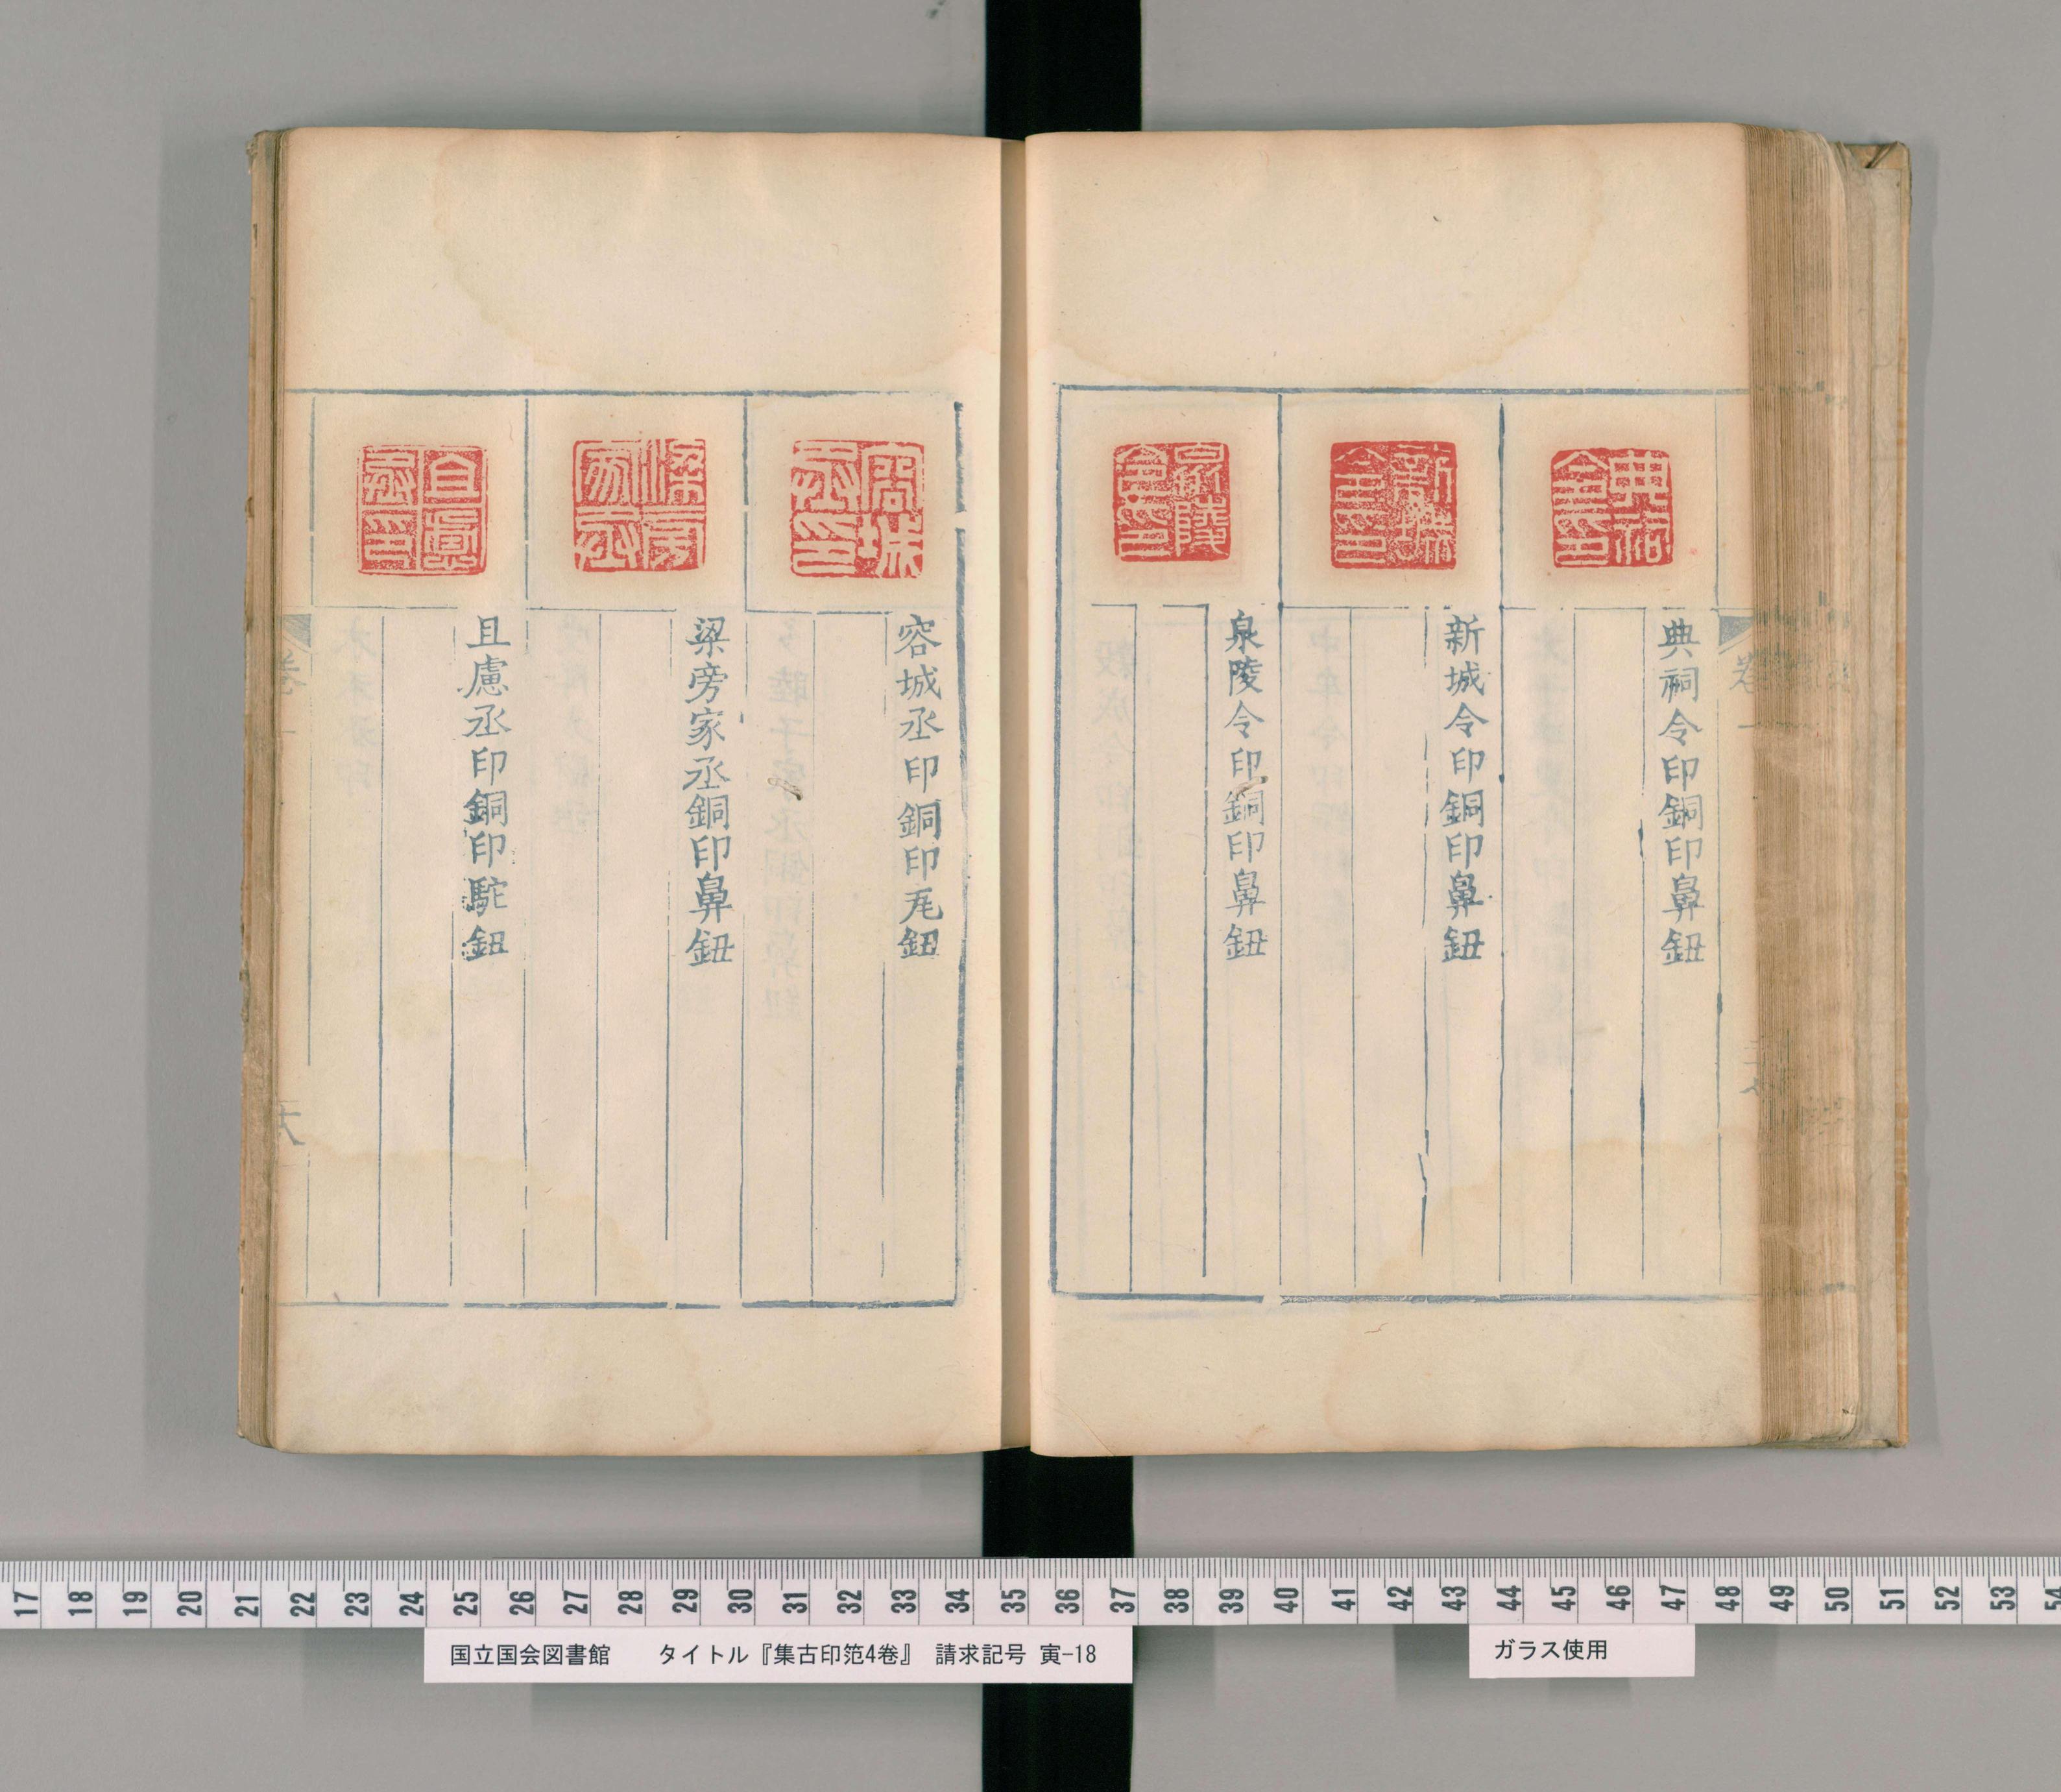 典祠令印銅印鼻鈕
新城令印銅印鼻鈕
泉陵令印銅印鼻鈕
容城丞印銅印瓦鈕
梁旁家丞銅印鼻鈕
且慮丞印銅印駝鈕
17 18 19 20 21 22 23 24 25 26 27 28 29 30 31 32 33 34 35 36 37 38 39 40 41 42 43 44 45 46 47 48 49 50 51 52 53 54
国立国会図書館 タイトル『集古印笵4巻』 請求記号 寅-18
ガラス使用